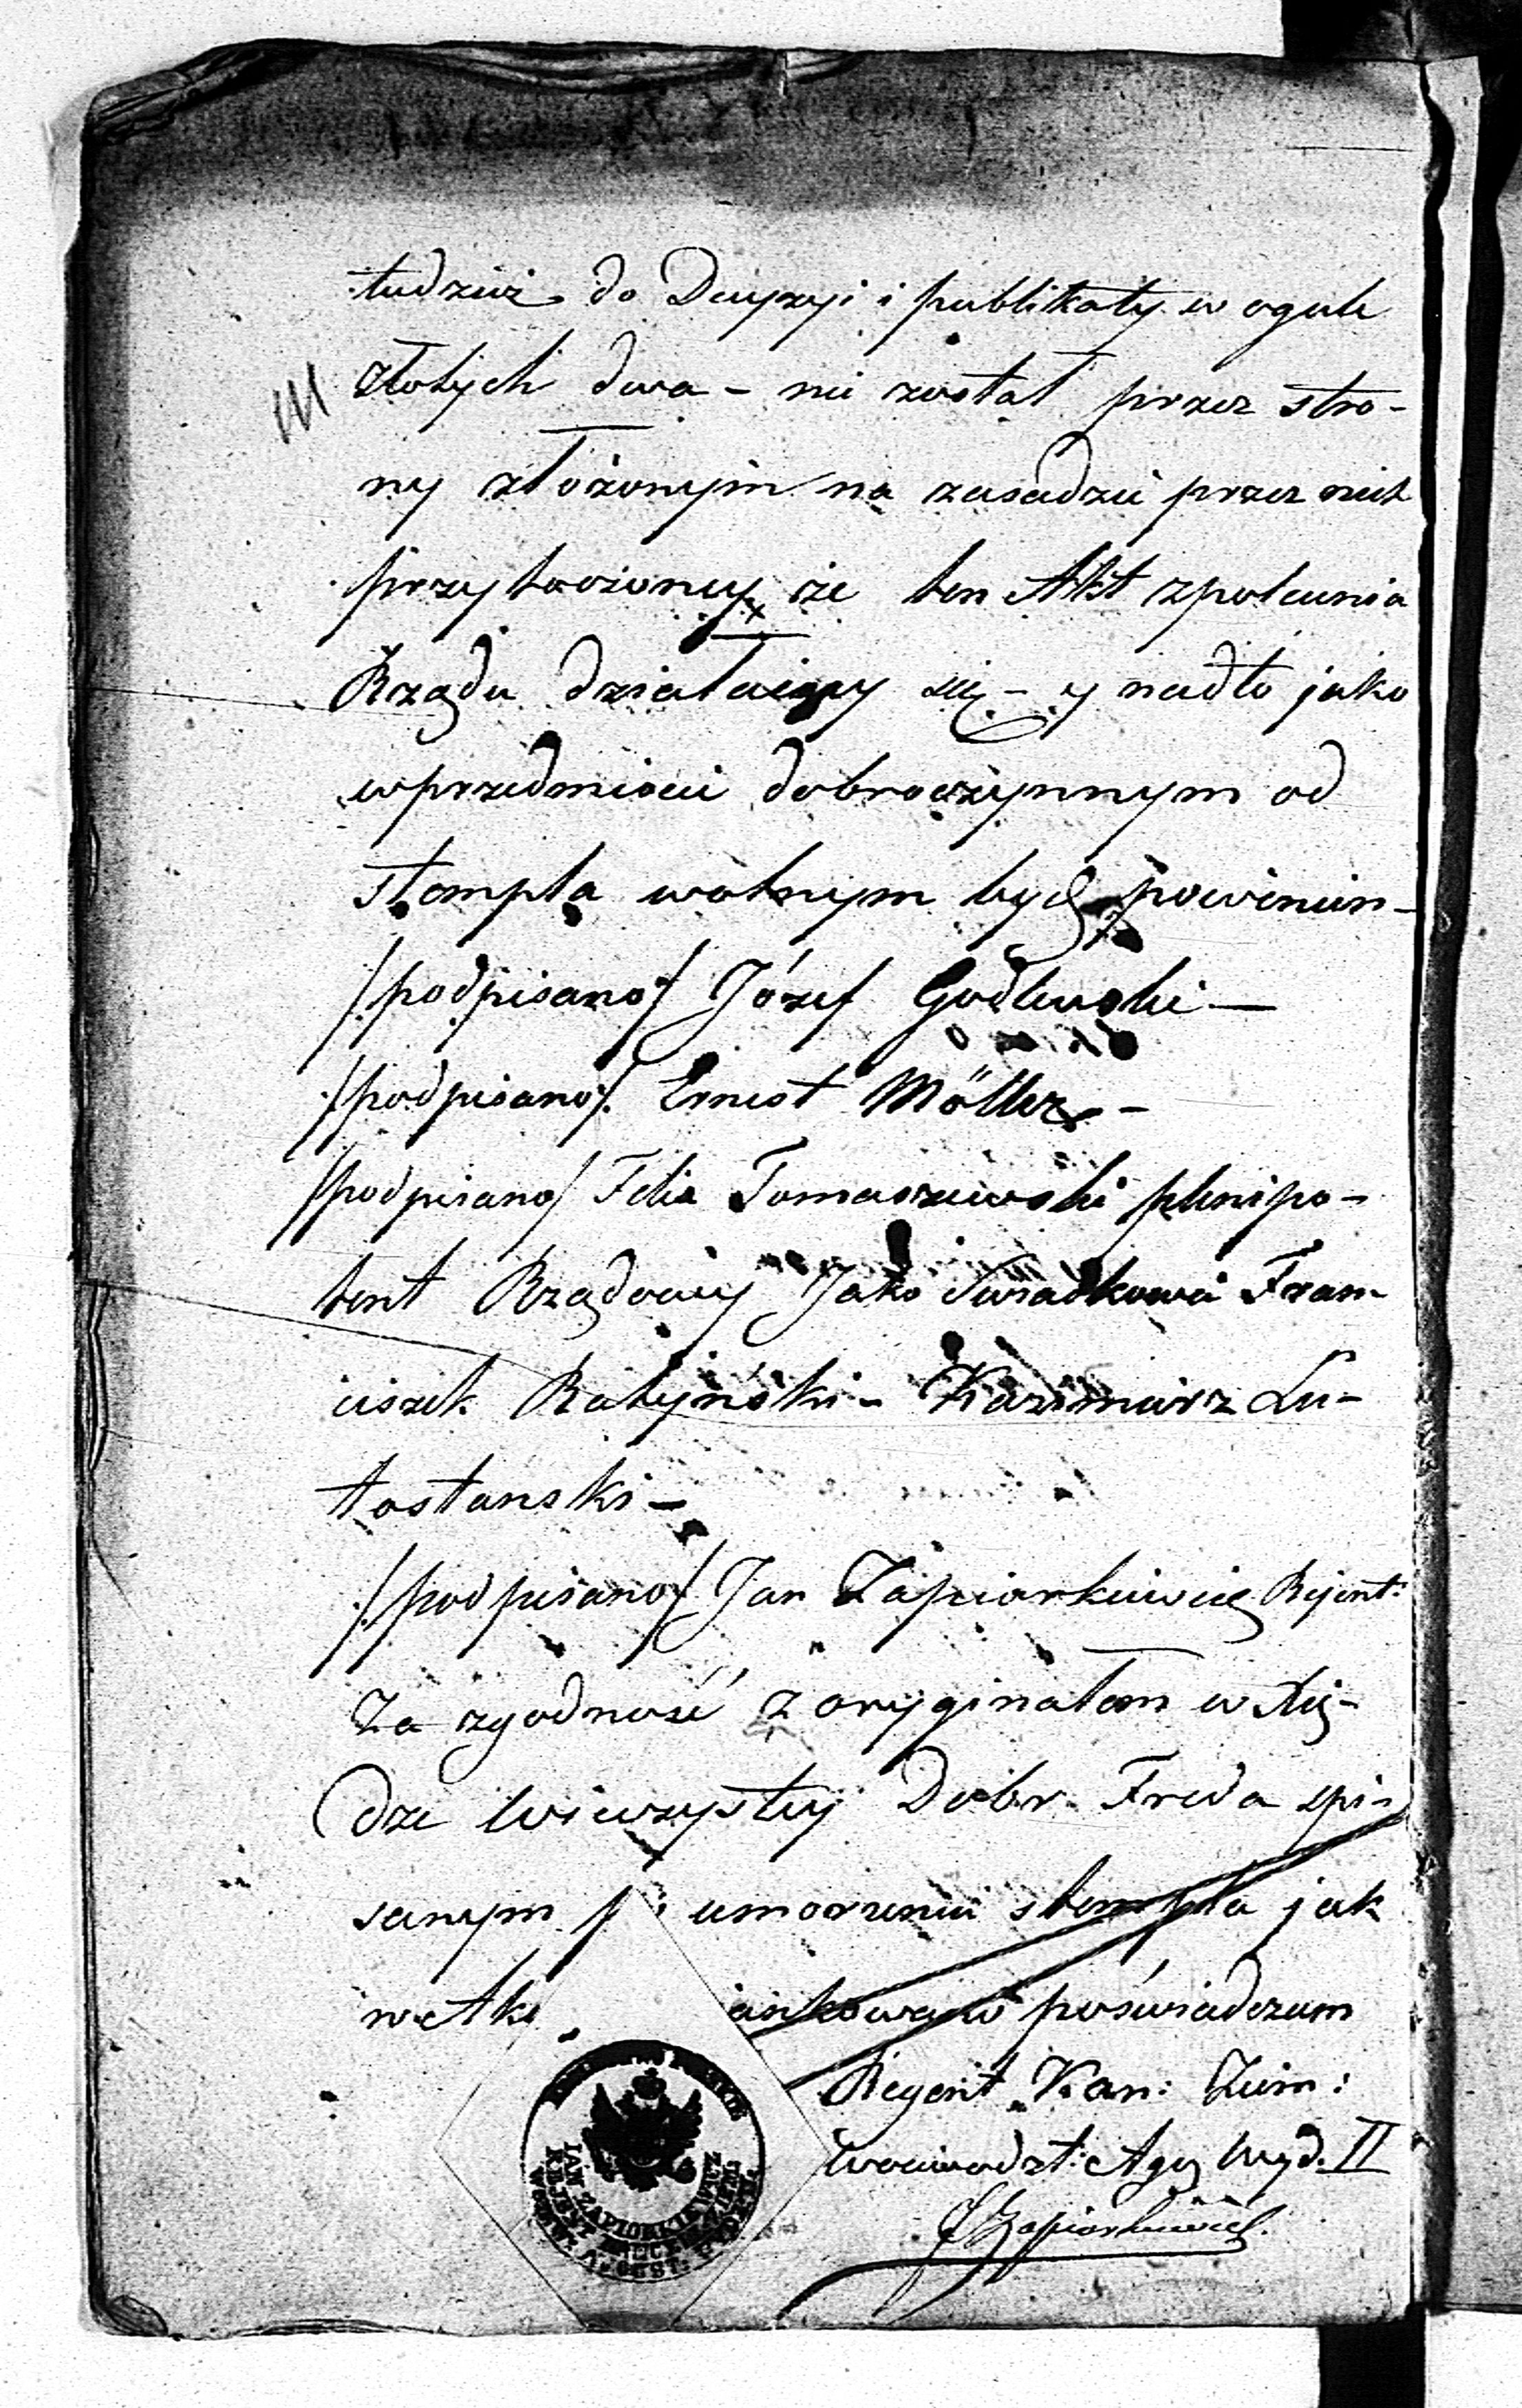 tudzież do Decyzyi i publikaty w ogule
złotych dwa – nie został przez stro-
ny złożonym na zasadzie przez nich
przytoczoney że ten Akt zpolecenia
Rządu działaiący się – y nadto jako
wprzedmiocie dobroczynnym od
stempla wolnym być powinien –
/podpisano/ Józef Godlewski —
/podpisano/ Ernest Möller –
/podpisano/ Felix Tomaszewski plenipo-
tent Rządowy Jako Swiadkowie Fran-
ciszek Ratyński – Kazimierz Lu-
tostanski –
/podpisano/ Jan Zapiorkiewicz Rejent:
Za zgodność z oryginałem w Xię-
dze Wieczystey Dobr Freda spi-
sanym umorzeniu stempla jak
poświadczam
Regent Kan: Ziem:
Woiewodzt: Aug Wyd. II
JZapiorkiewicz
JAN ZAPIORKIEWICZ